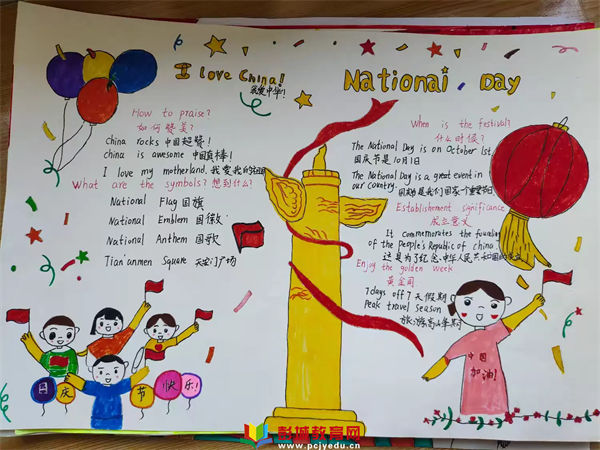 I love China!
我爱中华!
How to praise?
如何赞美?
China rocks 中国超赞!
China is awesome 中国真棒!
I love my motherland. 我爱我的祖国
What are the symbols? 想到什么?
National Flag 国旗
National Emblem 国徽
National Anthem 国歌
Tian'anmen Square 天安门广场
国庆节快乐!
National Day
When is the festival?
什么时候?
The National Day is on October 1st.
国庆节是10月1日
The National Day is a great event in
our country.
国庆是我们国家个重要节日
Establishement significance
成立意义
It commemorates the founding
of the people's Republic of china
这是为了纪念中华人民共和国的成立
Enjoy the golden week
黄金周
7days off 7天假期
Peak travel season
旅游高峰期
中国
加油!
彭城教育网
www.pcjyedu.cn